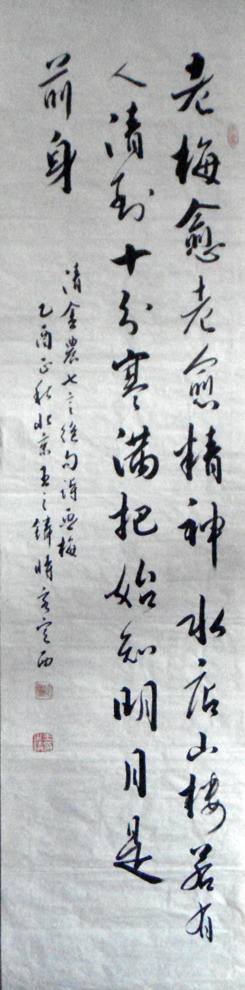 老梅愈老愈精神水店山楼若有
人清到十分寒满把始知明月是
前身
清金农七言绝句诗画梅
乙酉正秋北京王之鏻时客定西